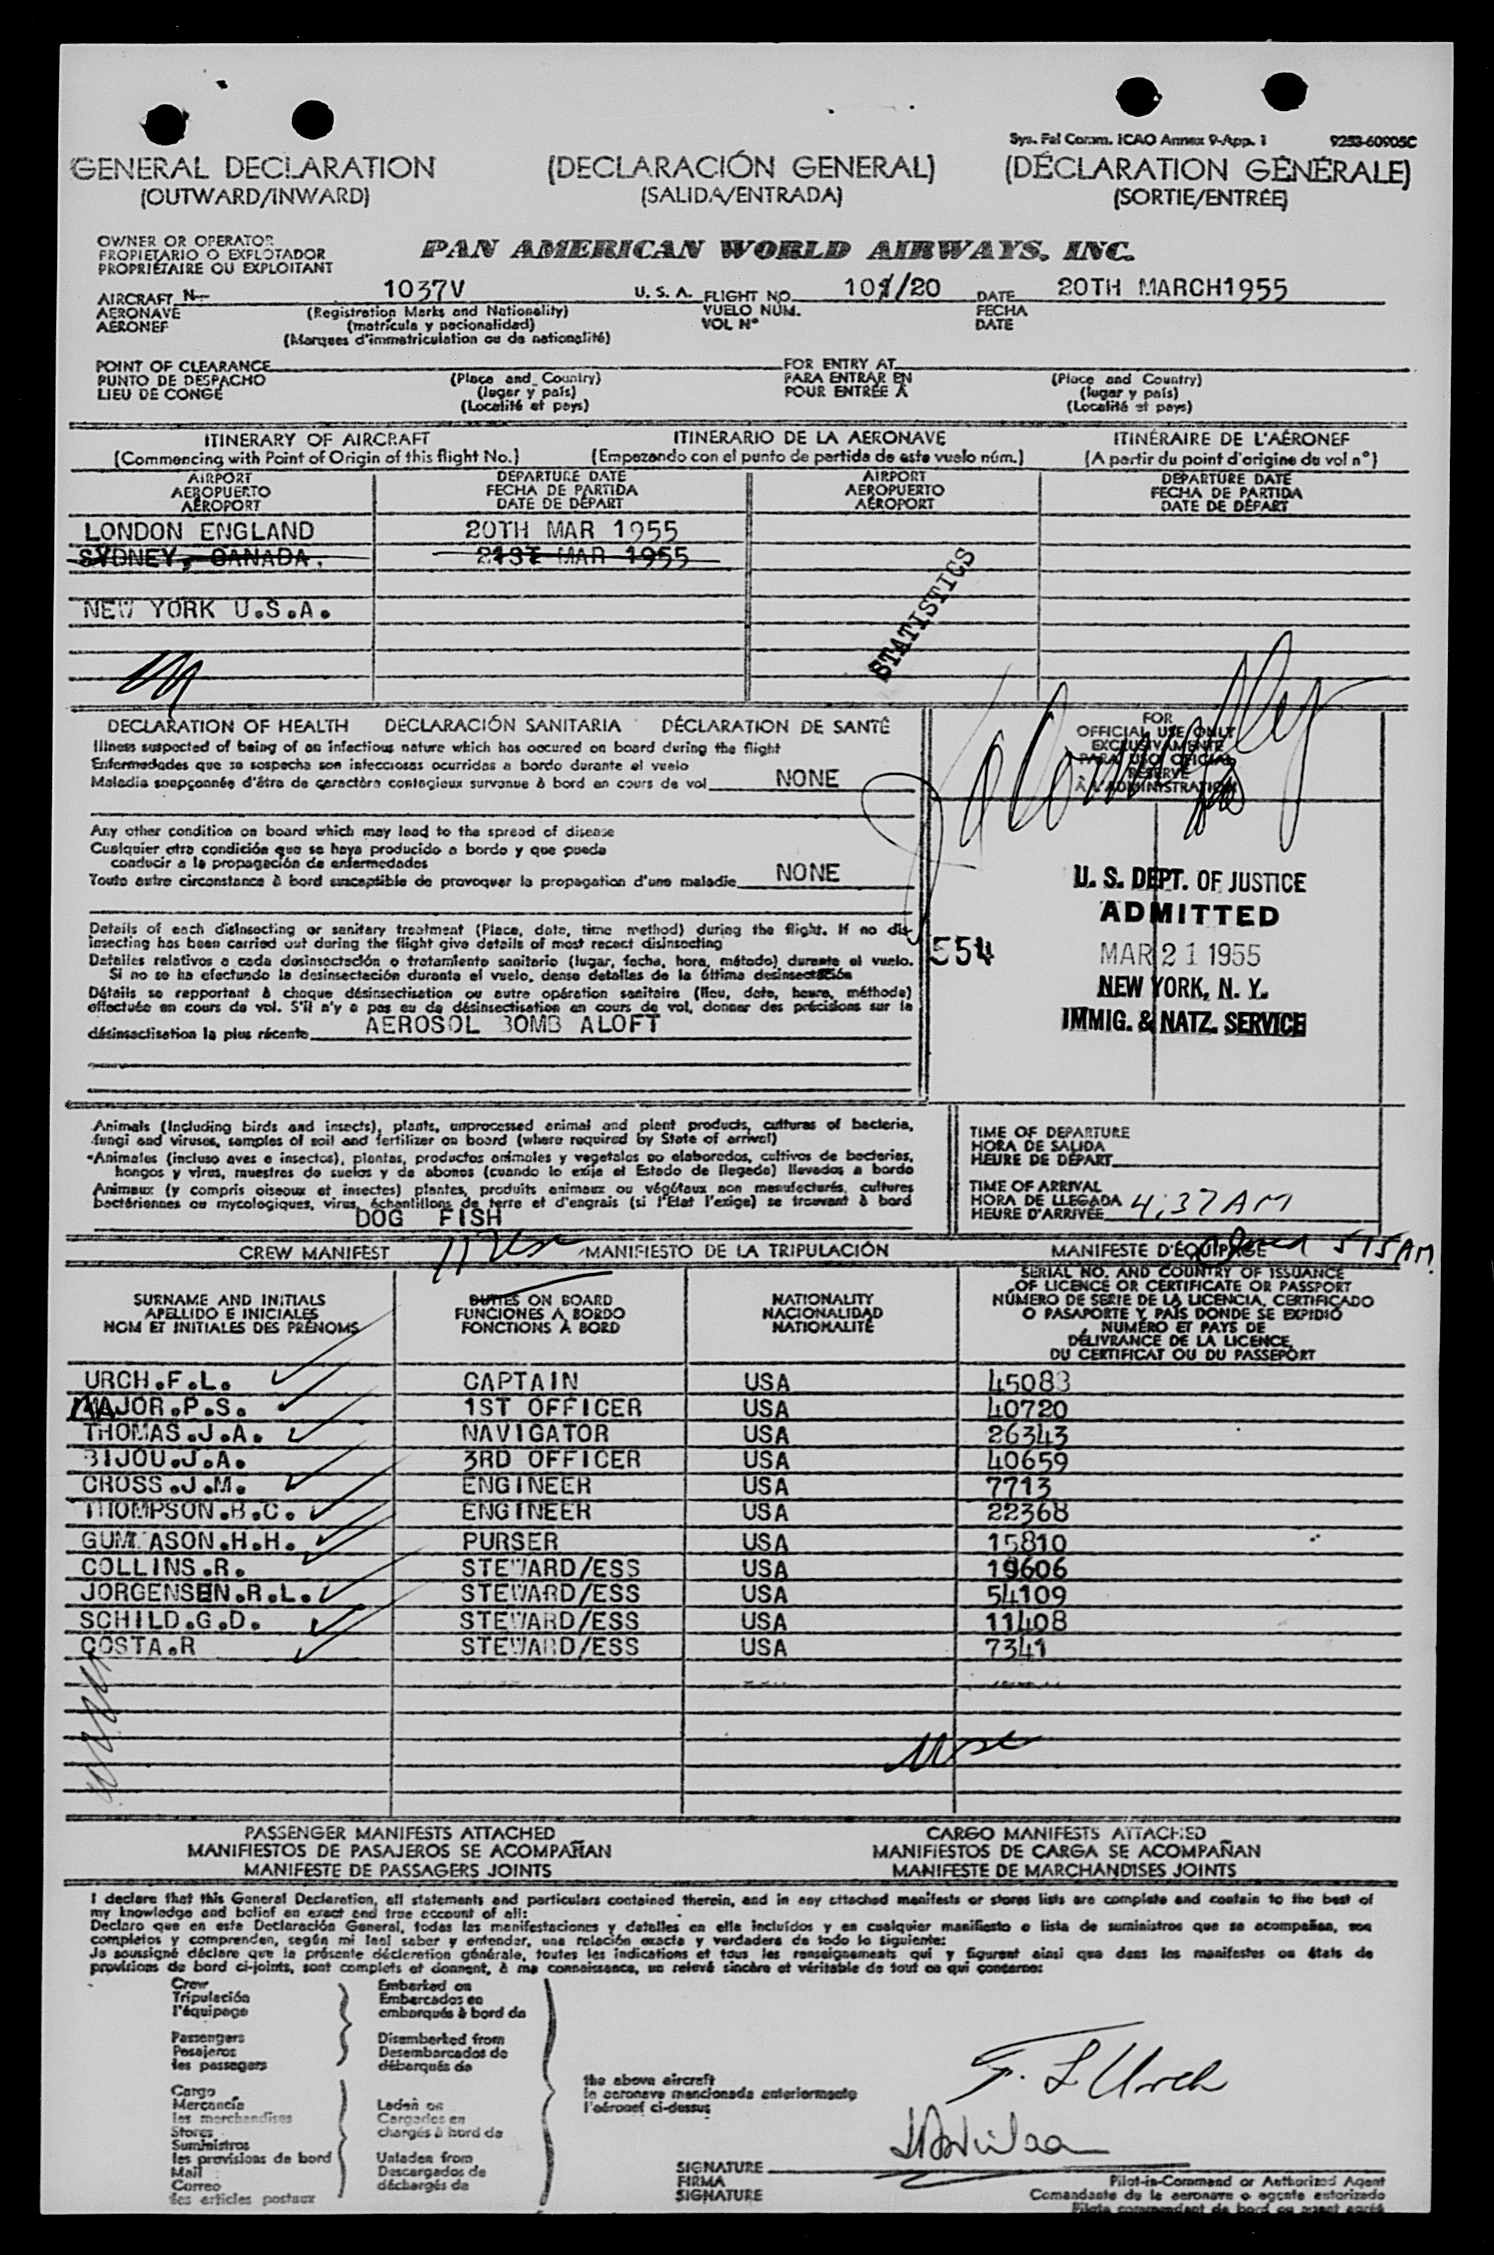 Sys. Fal Comm. ICAO Annex 9-App. 1 9253-60905C
GENERAL DECLARATION (DECLARACIÓN GENERAL) (DÉCLARATION GÉNÉRALE)
(OUTWARD/INWARD) (SALIDA/ENTRADA) (SORTIE/ENTRÉE)
OWNER OR OPERATOR
PROPIETARIO O EXPLOTADOR
PROPRIÉTAIRE OU EXPLOITANT
PAN AMERICAN WORLD AIRWAYS, INC.
AIRCRAFT N- 1037V U. S. A. FLIGHT NO. 101/20 DATE 20TH MARCH1955
AERONAVE (Registration Marks and Nationality) VUELO NÚM. FECHA
AÉRONEF (matrícula y nacionalidad) VOL Nº DATE
(Marques d'immatriculation ou de nationalité)
POINT OF CLEARANCE FOR ENTRY AT
PUNTO DE DESPACHO (Place and Country) PARA ENTRAR EN (Place and Country)
LIEU DE CONGÉ (lugar y país) POUR ENTRÉE À (lugar y país)
(Localité et pays) (Localité et pays)
ITINERARY OF AIRCRAFT ITINERARIO DE LA AERONAVE ITINÉRAIRE DE L'AÉRONEF
(Commencing with Point of Origin of this flight No.) (Empezando con el punto de partida de este vuelo núm.) (A partir du point d'origine du vol nº)
AIRPORT DEPARTURE DATE AIRPORT DEPARTURE DATE
AEROPUERTO FECHA DE PARTIDA AEROPUERTO FECHA DE PARTIDA
AÉROPORT DATE DE DÉPART AÉROPORT DATE DE DÉPART
LONDON ENGLAND 20TH MAR 1955
SYDNEY, CANADA. 21ST MAR 1955
NEW YORK U.S.A.
STATISTICS
DECLARATION OF HEALTH DECLARACIÓN SANITARIA DÉCLARATION DE SANTÉ
Illness suspected of being of an infectious nature which has occured on board during the flight
Enfermedades que se sospecha son infecciosas ocurridas a bordo durante el vuelo
Maladie soupçonnée d'être de caractère contagieux survenue à bord en cours de vol NONE
Any other condition on board which may lead to the spread of disease
Cualquier otra condición que se haya producido a bordo y que pueda
conducir a la propagación de enfermedades
Toute autre circonstance à bord susceptible de provoquer la propagation d'une maladie NONE
Details of each disinsecting or sanitary treatment (Place, date, time method) during the flight. If no dis-
insecting has been carried out during the flight give details of most recect disinsecting
Detalles relativos a cada desinsectación o tratamiento sanitario (lugar, fecha, hora, método) durante el vuelo.
Si no se ha efectundo la desinsectación durante el vuelo, dense detalles de la última desinsectación
Détails se rapportant à chaque désinsectisation ou autre opération sanitaire (lieu, date, heure, méthode)
effectuée en cours de vol. S'il n'y a pas eu de désinsectisation en cours de vol, donner des précisions sur la
désinsectisation la plus récente AEROSOL BOMB ALOFT
FOR
OFFICIAL USE ONLY
EXCLUSIVAMENTE
PARA USO OFICIAL
RÉSERVÉ
À L'ADMINISTRATION
554
U. S. DEPT. OF JUSTICE
ADMITTED
MAR 21 1955
NEW YORK, N. Y.
IMMIG. & NATZ. SERVICE
Animals (Including birds and insects), plants, unprocessed animal and plant products, cultures of bacteria,
fungi and viruses, samples of soil and fertilizer on board (where required by State of arrival)
Animales (incluso aves e insectos), plantas, productos animales y vegetales no elaborados, cultivos de bacterias,
hongos y virus, muestras de suelos y de abonos (cuando lo exija el Estado de llegada) llevados a bordo
Animaux (y compris oiseaux et insectes) plantes, produits animaux ou végétaux non manufacturés, cultures
bactériennes ou mycologiques, virus, échantillons de terre et d'engrais (si l'Etat l'exige) se trouvant à bord
DOG FISH
TIME OF DEPARTURE
HORA DE SALIDA
HEURE DE DÉPART
TIME OF ARRIVAL
HORA DE LLEGADA 4:37 AM
HEURE D'ARRIVÉE
CREW MANIFEST MANIFIESTO DE LA TRIPULACIÓN MANIFESTE D'ÉQUIPAGE 515 AM
SURNAME AND INITIALS
APELLIDO E INICIALES
NOM ET INITIALES DES PRÉNOMS
DUTIES ON BOARD
FUNCIONES A BORDO
FONCTIONS À BORD
NATIONALITY
NACIONALIDAD
NATIONALITÉ
SERIAL NO. AND COUNTRY OF ISSUANCE
OF LICENCE OR CERTIFICATE OR PASSPORT
NÚMERO DE SERIE DE LA LICENCIA, CERTIFICADO
O PASAPORTE Y PAÍS DONDE SE EXPIDIÓ
NUMÉRO ET PAYS DE
DÉLIVRANCE DE LA LICENCE,
DU CERTIFICAT OU DU PASSEPORT
URCH.F.L. CAPTAIN USA 45083
MAJOR.P.S. 1ST OFFICER USA 40720
THOMAS.J.A. NAVIGATOR USA 26343
BIJOU.J.A. 3RD OFFICER USA 40659
CROSS.J.M. ENGINEER USA 7713
THOMPSON.B.C. ENGINEER USA 22368
ASON.H.H. PURSER USA 15810
COLLINS.R. STEWARD/ESS USA 19606
JORGENSEN.R.L. STEWARD/ESS USA 54109
SCHILD.G.D. STEWARD/ESS USA 11408
COSTA.R STEWARD/ESS USA 7341
PASSENGER MANIFESTS ATTACHED CARGO MANIFESTS ATTACHED
MANIFIESTOS DE PASAJEROS SE ACOMPAÑAN MANIFIESTOS DE CARGA SE ACOMPAÑAN
MANIFESTE DE PASSAGERS JOINTS MANIFESTE DE MARCHANDISES JOINTS
I declare that this General Declaration, all statements and particulars contained therein, and in any attached manifests or stores lists are complete and contain to the best of
my knowledge and belief an exact and true account of all:
Declaro que en este Declaración General, todas las manifestaciones y detalles en ella incluídos y en cualquier manifiesto o lista de suministros que se acompañan, son
completos y comprenden, según mi leal saber y entender, una relación exacta y verdadera de todo lo siguiente:
Je soussigné déclare que la présente déclaration générale, toutes les indications et tous les renseignements qui y figurent ainsi que dans les manifestes ou états de
provisions de bord ci-joints, sont complets et donnent, à ma connaissance, un relevé sincère et véritable de tout ce qui concerne:
Crew Embarked on
Tripulación Embarcados en
l'équipage embarqués à bord de
Passengers Disembarked from
Pasajeros Desembarcados de
les passagers débarqués de
the above aircraft
la aeronave mencionada anteriormente
l'aéronef ci-dessus
Cargo
Mercancía Laden on
les marchandises Cargados en
Stores chargés à bord de
Suministros
les provisions de bord Unladen from
Mail Descargados de
Correo déchargés de
les articles postaux
F. L Urch
SIGNATURE
FIRMA
SIGNATURE
Pilot-in-Command or Authorized Agent
Comandante de la aeronave o agente autorizado
Pilote commandant de bord ou agent agréé